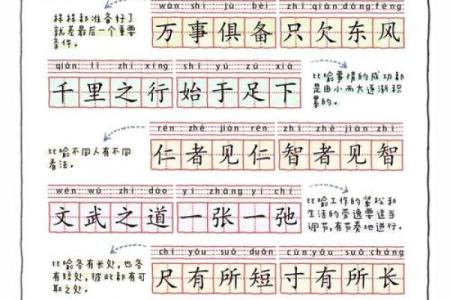 样样都准备好了
就差最后一个重要
条件。
wàn shì jù bèi zhǐ qiàn dōng fēng
万事俱备只欠东风
qiān lǐ zhī xíng shǐ yú zú xià
千里之行始于足下
比喻事情的成功都
是由小而大逐渐积
累的。
比喻不同人有不同
看法。
rén zhě jiàn rén zhì zhě jiàn zhì
仁者见仁智者见智
wén wǔ zhī dào yì zhāng yì chí
文武之道一张一弛
比喻工作的紧松和
生活的劳逸要适当
调节,有节奏地进行。
比喻各有长处,也各
有短处,彼此都有可
取之处。
chǐ yǒu suǒ duǎn cùn yǒu suǒ cháng
尺有所短寸有所长